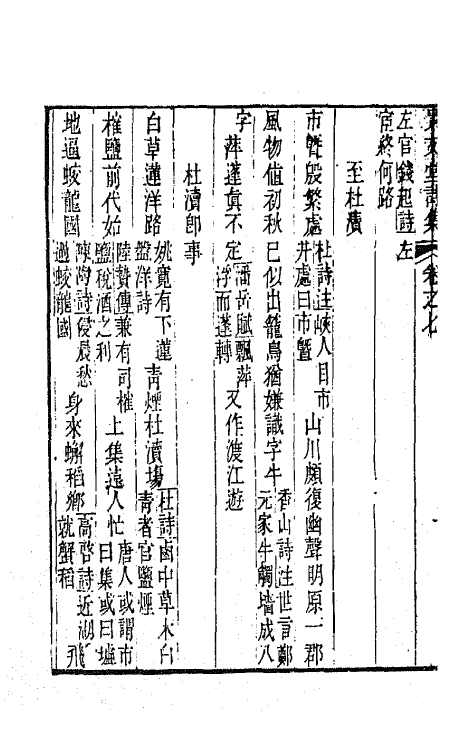 堂詩集 卷之七
左官錢起詩左宦終何路
至杜瀆
市暨殷繁處杜詩注峽人目市井處曰市暨山川頗復幽聲明原一郡
風物値初秋已似出籠鳥猶嫌識字牛香山詩注世言鄭元家牛觸墻成八
字萍蓬眞不定潘岳賦飄萍浮而蓬轉又作渡江遊
杜瀆卽事
白草蓮洋路姚寬有下蓮盤洋詩靑煙杜瀆場杜詩鹵中草木白靑者官鹽煙
榷鹽前代始陸贄傳兼有司榷鹽稅酒之利上集遠人忙唐人或謂市曰集或曰墟
地逼蛟龍國陳陶詩侵晨愁過蛟龍國身來蠏稻鄉高啓詩近湖飛就蟹稻